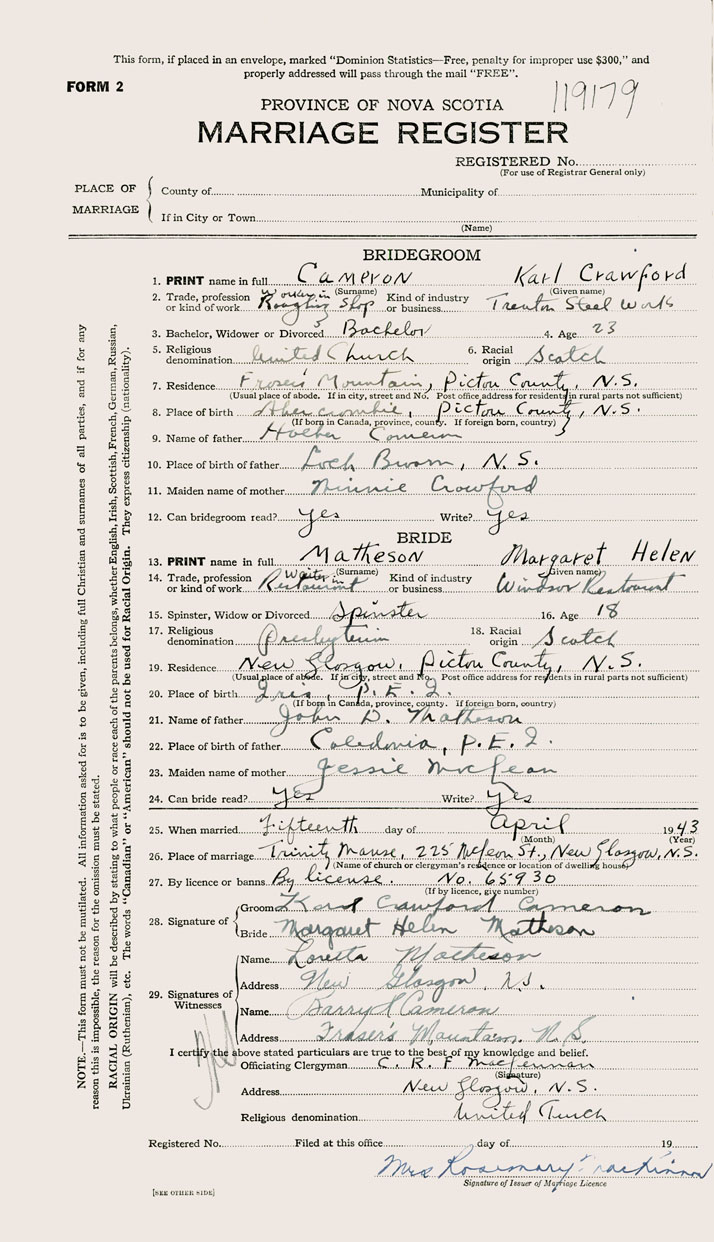 This form, if placed in an envelope, marked "Dominion Statistics—Free, penalty for improper use $300," and
properly addressed will pass through the mail "FREE".
FORM 2
119179
PROVINCE OF NOVA SCOTIA
MARRIAGE REGISTER
REGISTERED No.
(For use of Registrar General only)
PLACE OF MARRIAGE
County of Municipality of
If in City or Town
(Name)
BRIDEGROOM
1. PRINT name in full Cameron Karl Crawford
(Surname) (Given name)
2. Trade, profession or kind of work Worker in Roughing Shop Kind of industry or business Trenton Steel Works
3. Bachelor, Widower or Divorced Bachelor 4. Age 23
5. Religious denomination United Church 6. Racial origin Scotch
7. Residence Fraser's Mountain, Pictou County, N.S.
(Usual place of abode. If in city, street and No. Post office address for residents in rural parts not sufficient)
8. Place of birth Abercrombie, Pictou County, N.S.
(If born in Canada, province, county. If foreign born, country)
9. Name of father Cameron
10. Place of birth of father Loch Broom, N.S.
11. Maiden name of mother Minnie Crawford
12. Can bridegroom read? Yes Write? Yes
BRIDE
13. PRINT name in full Matheson Margaret Helen
(Surname) (Given name)
14. Trade, profession or kind of work Waiter in Restaurant Kind of industry or business Windsor Restaurant
15. Spinster, Widow or Divorced Spinster 16. Age 18
17. Religious denomination Presbyterian 18. Racial origin Scotch
19. Residence New Glasgow, Pictou County, N.S.
(Usual place of abode. If in city, street and No. Post office address for residents in rural parts not sufficient)
20. Place of birth Iris, P.E.I.
(If born in Canada, province, county. If foreign born, country)
21. Name of father John D. Matheson
22. Place of birth of father Caledonia, P.E.I.
23. Maiden name of mother Jessie McLean
24. Can bride read? Yes Write? Yes
25. When married Fifteenth day of April 1943
(Month) (Year)
26. Place of marriage Trinity Manse, 225 McLean St., New Glasgow, N.S.
(Name of church or clergyman's residence or location of dwelling house)
27. By licence or banns By license. No. 65930
(If by licence, give number)
28. Signature of
Groom Karl Crawford Cameron
Bride Margaret Helen Matheson
29. Signatures of Witnesses
Name Loretta Matheson
Address New Glasgow, N.S.
Name Barry Cameron
Address Fraser's Mountain, N.S.
I certify the above stated particulars are true to the best of my knowledge and belief.
Officiating Clergyman C. R. F. MacLennan
(Signature)
Address New Glasgow, N.S.
Religious denomination United Church
Registered No. Filed at this office day of 19
Mrs Rosemary MacKinnon
Signature of Issuer of Marriage Licence
[SEE OTHER SIDE]
NOTE.—This form must not be mutilated. All information asked for is to be given, including full Christian and surnames of all parties, and if for any
reason this is impossible, the reason for the omission must be stated.
RACIAL ORIGIN will be described by stating to what people or race each of the parents belongs, whether English, Irish, Scottish, French, German, Russian,
Ukrainian (Ruthenian), etc. The words "Canadian" or "American" should not be used for Racial Origin. They express citizenship (nationality).